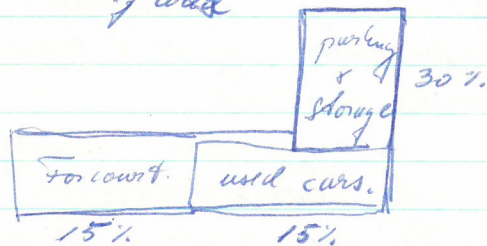 parking
&
storage
30%
Forcourt.
used cars.
15%
15%